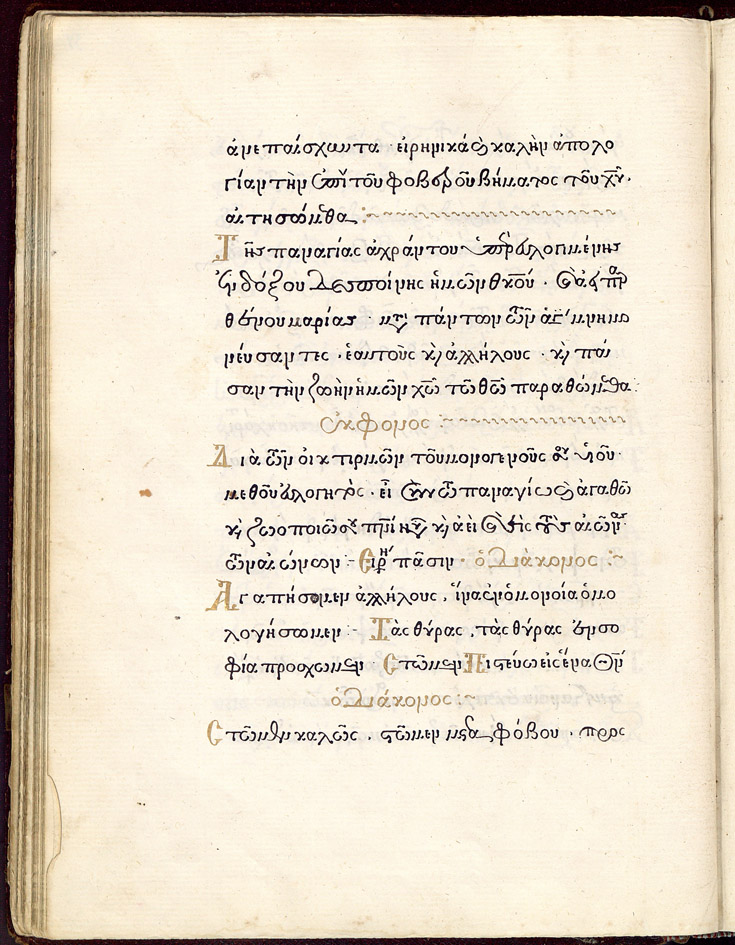 ἀνεπαίσχυντα · εἰρηνικὰ καλὴν ἀπολο
γίαν τὴν ἐπὶ τοῦ φοβεροῦ βήματος τοῦ χυ ·
αἰτησώμεθα
Τῆς παναγίας ἀχράντου ὑπερευλογημένης
ἐνδόξου δεσποίνης ἡμῶν θκου · καὶ ἀειπαρ
θένου μαρίας · μετὰ πάντων τῶν ἁγίων μνημο
νεύσαντες · ἑαυτοὺς καὶ ἀλλήλους · καὶ πᾶ
σαν τὴν ζωὴν ἡμῶν χω τῶ θεῶ παραθώμεθα
ἐκφονος
Διὰ τῶν οἰκτιρμῶν τοῦ μονογενοῦς σου υἱοῦ ·
μεθ οὗ εὐλογητὸς · εἶ σὺν τῶ παναγίω καὶ ἀγαθῶ
καὶ ζωοποιῶ σου πνι νῦν καὶ ἀεὶ καὶ εἰς τοὺς αἰῶνας
τῶν αἰώνων Εἰρην πᾶσιν ὁ Διάκονος
Ἀγαπήσωμεν ἀλλήλους, ἵνα ἐν ὁμονοία ὁμο
λογήσωμεν Τὰς θύρας, τὰς θύρας ἐν σο
φία προσχωμεν Στῶμεν Πιστεύω εἰς ἕνα Θν
ὁ Διάκονος
Στῶμεν καλῶς, στῶμεν μετὰ φόβου · προς